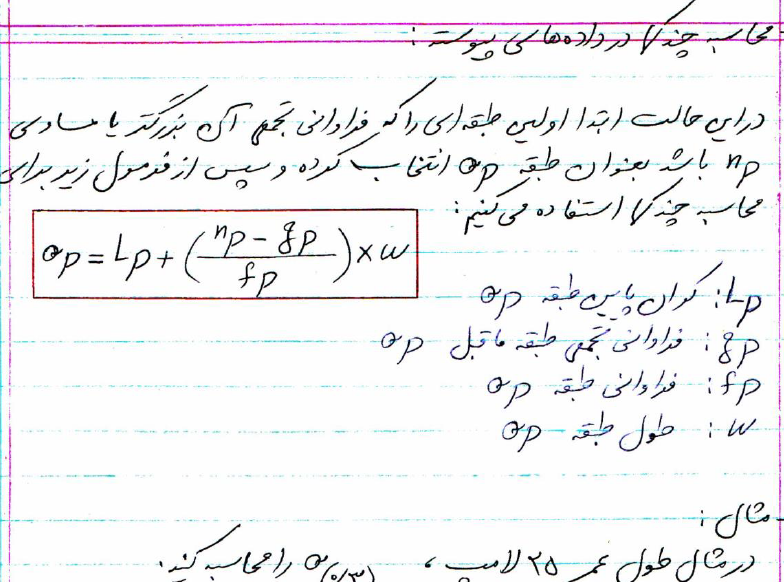 محاسبه چندکها در داده‌های پیوسته :
در این حالت ابتدا اولین طبقه‌ای را که فراوانی تجمعی آن بزرگتر یا مساوی
np باشد بعنوان طبقه Qp انتخاب کرده و سپس از فرمول زیر برای
محاسبه چندکها استفاده می‌کنیم:
Qp = Lp + (np - gp / fp) × w
Lp: کران پایین طبقه Qp
gp: فراوانی تجمعی طبقه ماقبل Qp
fp: فراوانی طبقه Qp
w: طول طبقه Qp
مثال :
در مثال طول عمر ۲۵ لامپ ، Q(۰/۳) را محاسبه کنید.